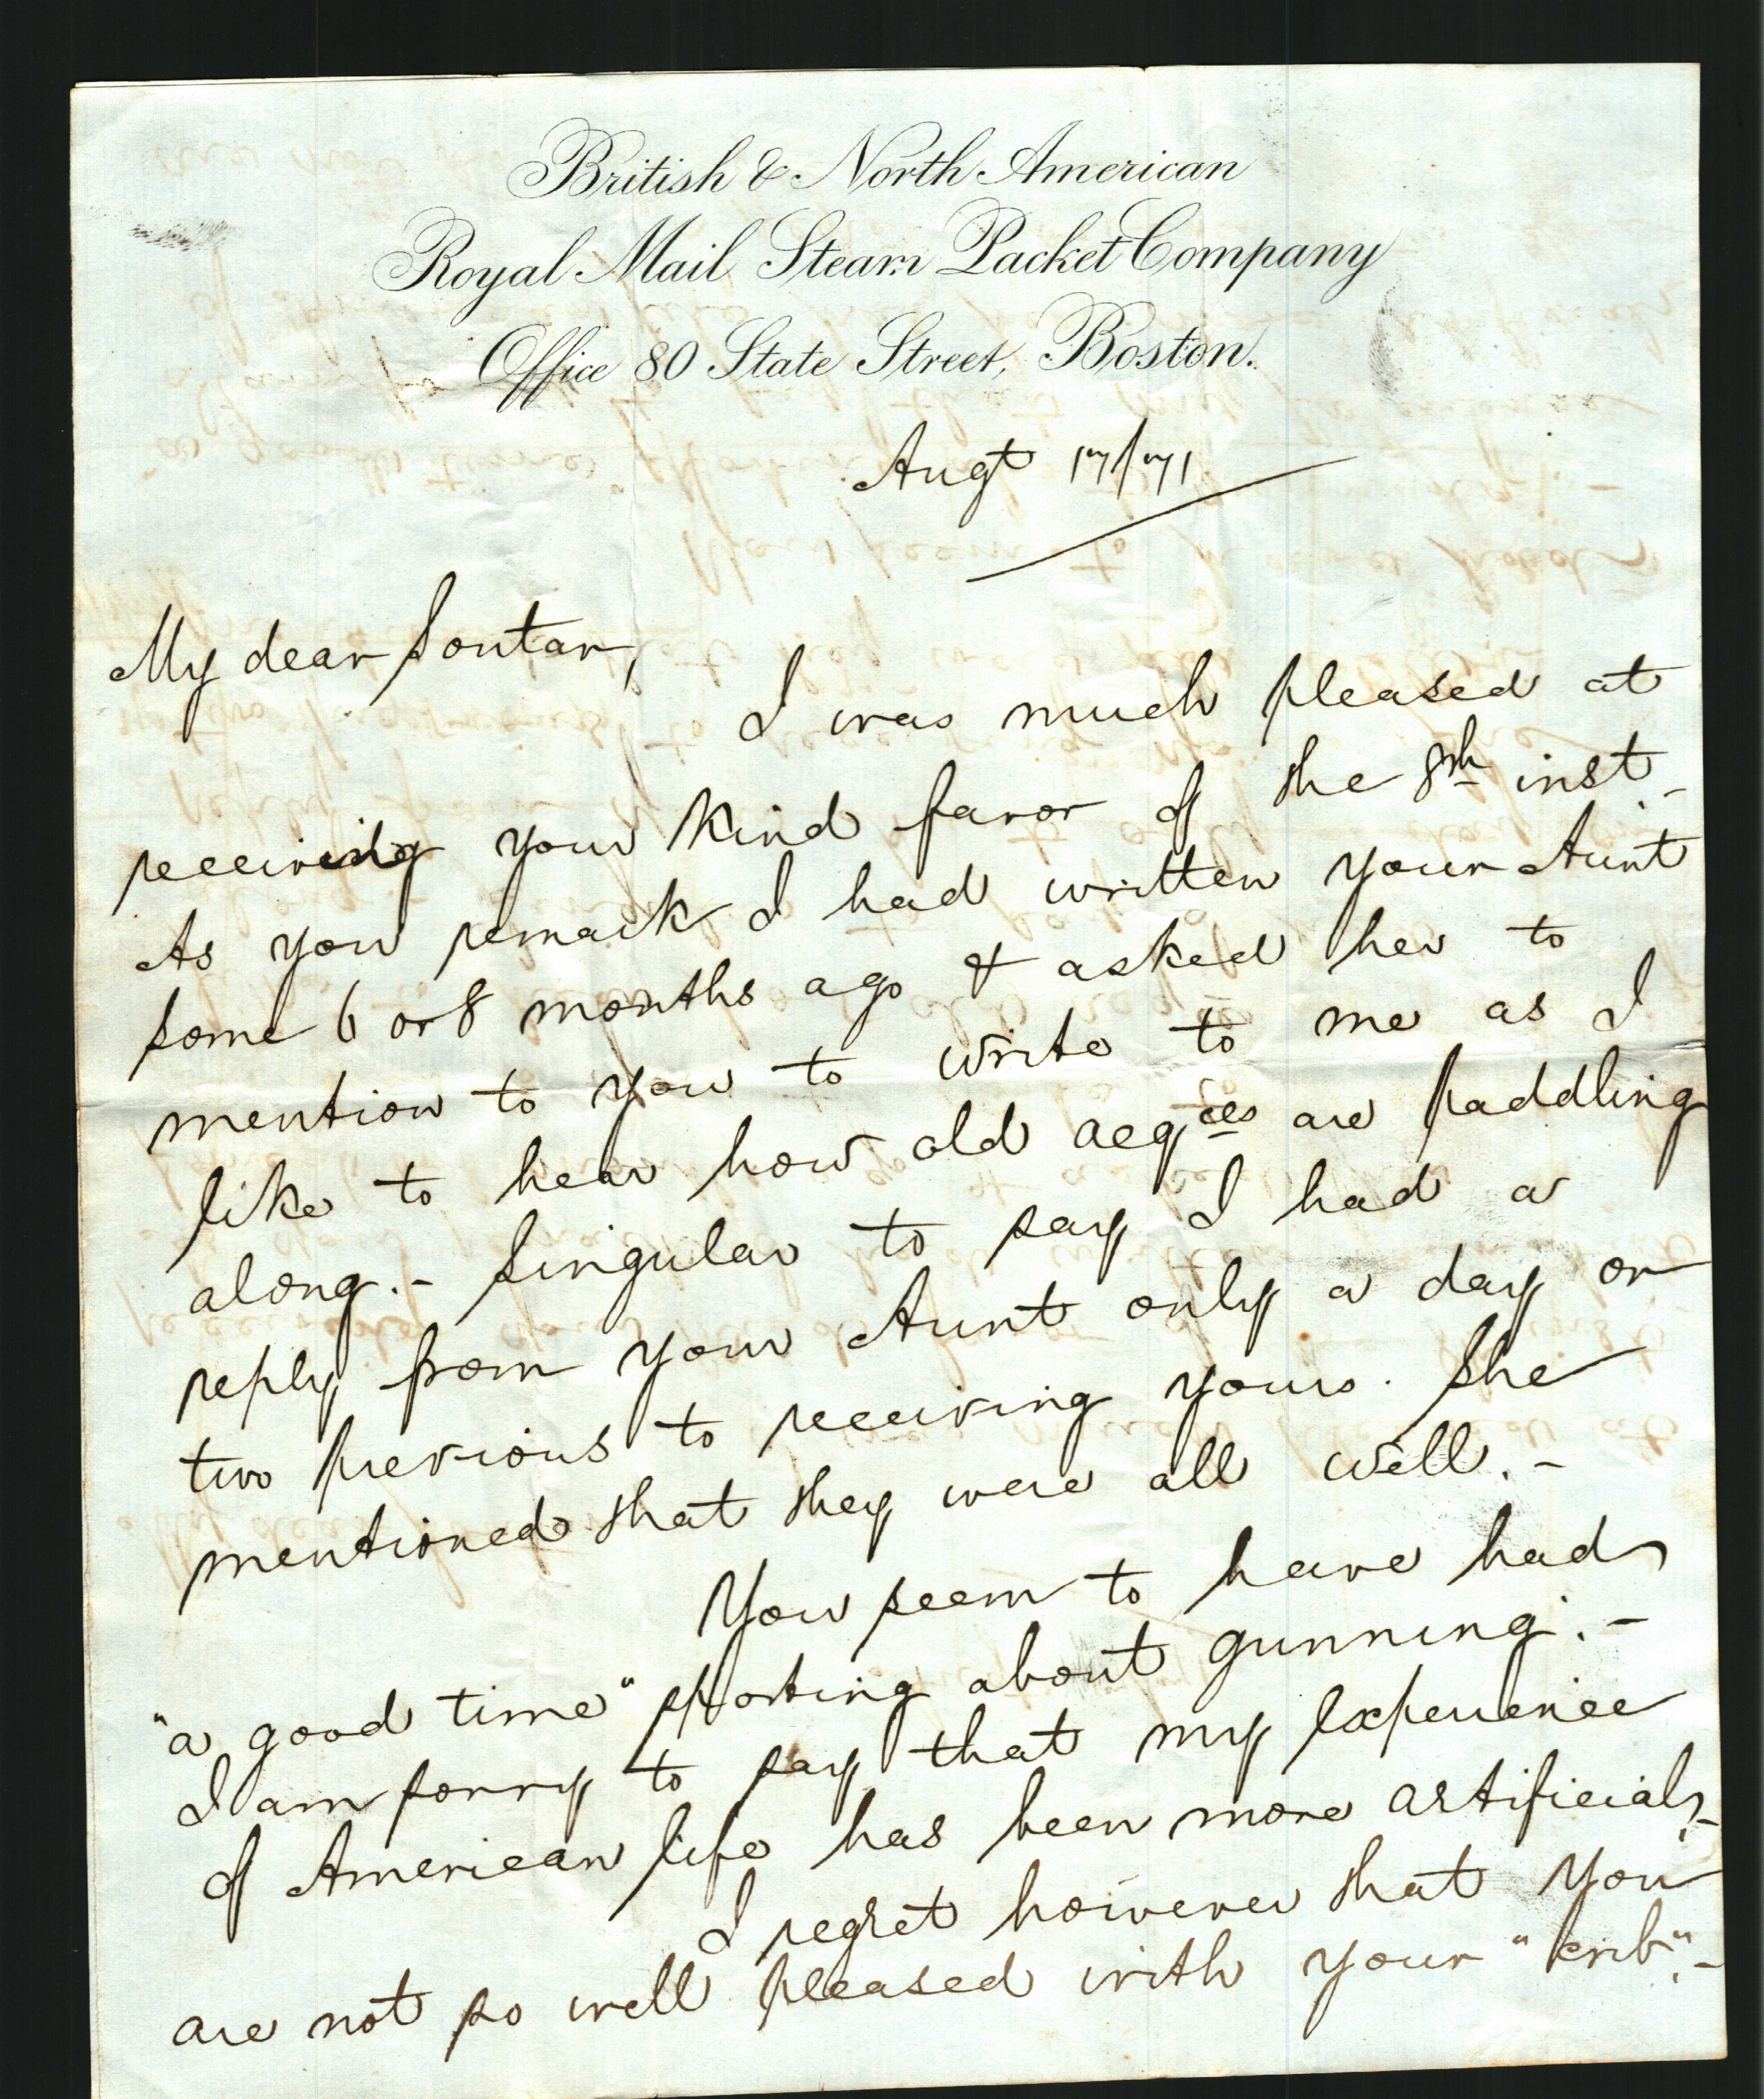 British & North American
Royal Mail Steam Packet Company
Office 80 State Street, Boston.
Augt 17/71
My dear Soutar,
I was much pleased at
receiving your kind favor of the 8th inst.-
As you remark I had written your Aunt
some 6 or 8 months ago & asked her to
mention to you to write to me as I
like to hear how old acqces are paddling
along.- Singular to say I had a
reply from your Aunt only a day or
two previous to receiving yours. She
mentioned that they were all well.-
You seem to have had
"a good time" sporting about gunning.-
I am sorry to say that my experience
of American life has been more artificial.-
I regret however that you
are not so well pleased with your "crib".-